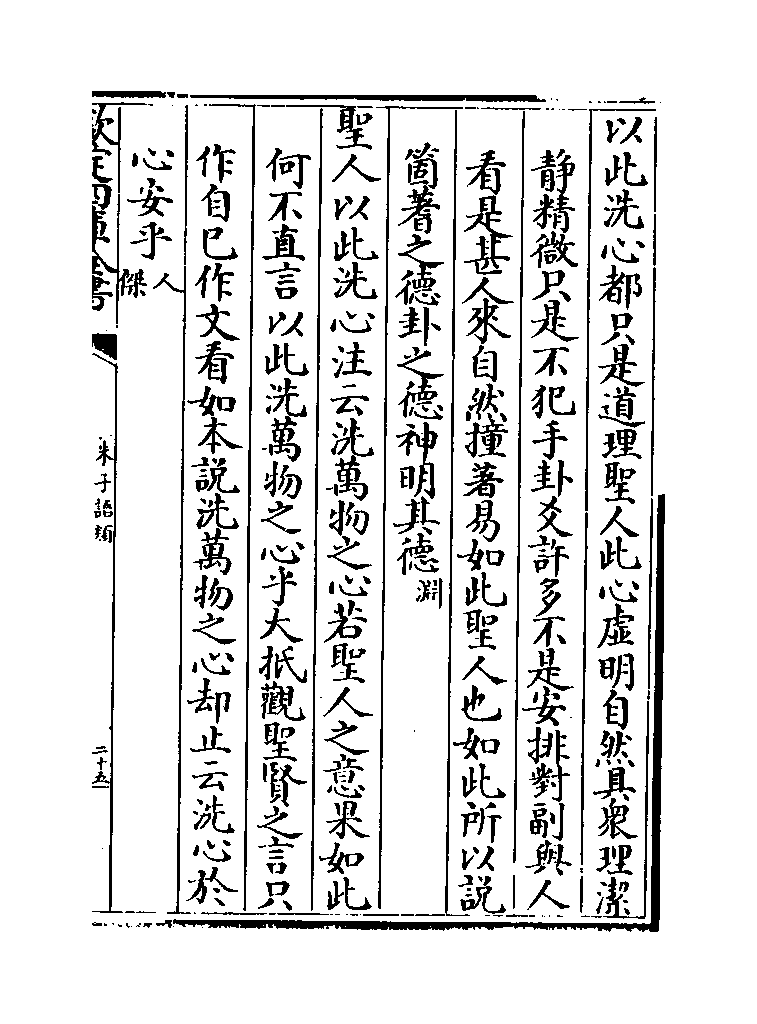 以此洗心都只是道理聖人此心虛明自然具衆理潔
靜精微只是不犯手卦爻許多不是安排對副與人
看是甚人來自然撞著易如此聖人也如此所以說
箇蓍之德卦之德神明其德淵
聖人以此洗心注云洗萬物之心若聖人之意果如此
何不直言以此洗萬物之心乎大抵觀聖賢之言只
作自已作文看如本說洗萬物之心却止云洗心於
心安乎人傑
欽定四庫全書
朱子語類
二十五